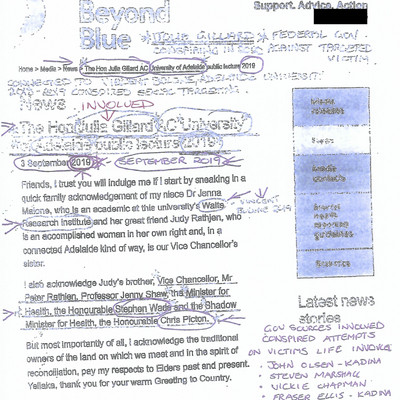 Beyond
Blue
Support. Advice. Action
* JULIA GILLARD * FEDERAL GOV
CONSPIRING IN 2010 AGAINST TARGETED
VICTIM
Home > Media > News > The Hon Julia Gillard AC University of Adelaide public lecture 2019
CONNECTED TO VINCENT ADELAIDE UNIVERSITY
2019 CONSPIRED SOCIAL TARGETING
News INVOLVED
The Hon Julia Gillard AC University
of Adelaide public lecture 2019
3 September 2019 SEPTEMBER 2019
Friends, I trust you will indulge me if I start by sneaking in a
quick family acknowledgement of my niece Dr Jenna
Malone, who is an academic at this university's Waite
Research Institute and her great friend Judy Rathjen, who
VINCENT
2019
is an accomplished women in her own right and, in a
connected Adelaide kind of way, is our Vice Chancellor's
sister.
I also acknowledge Judy's brother, Vice Chancellor, Mr
Peter Rathjen, Professor Jenny Shaw, the Minister for
Health, the Honourable Stephen Wade and the Shadow
Minister for Health, the Honourable Chris Picton.
But most importantly of all, I acknowledge the traditional
owners of the land on which we meet and in the spirit of
reconciliation, pay my respects to Elders past and present.
Yellaka, thank you for your warm Greeting to Country.
Media
releases
Media
contacts
guidelines
Latest news
stories
GOV SOURCES INVOLVED
CONSPIRED ATTEMPTS
ON VICTIMS LIFE INVOLVE
• JOHN OLSEN - KADINA
• STEVEN MARSHALL
• VICKIE CHAPMAN
• FRASER ELLIS - KADINA